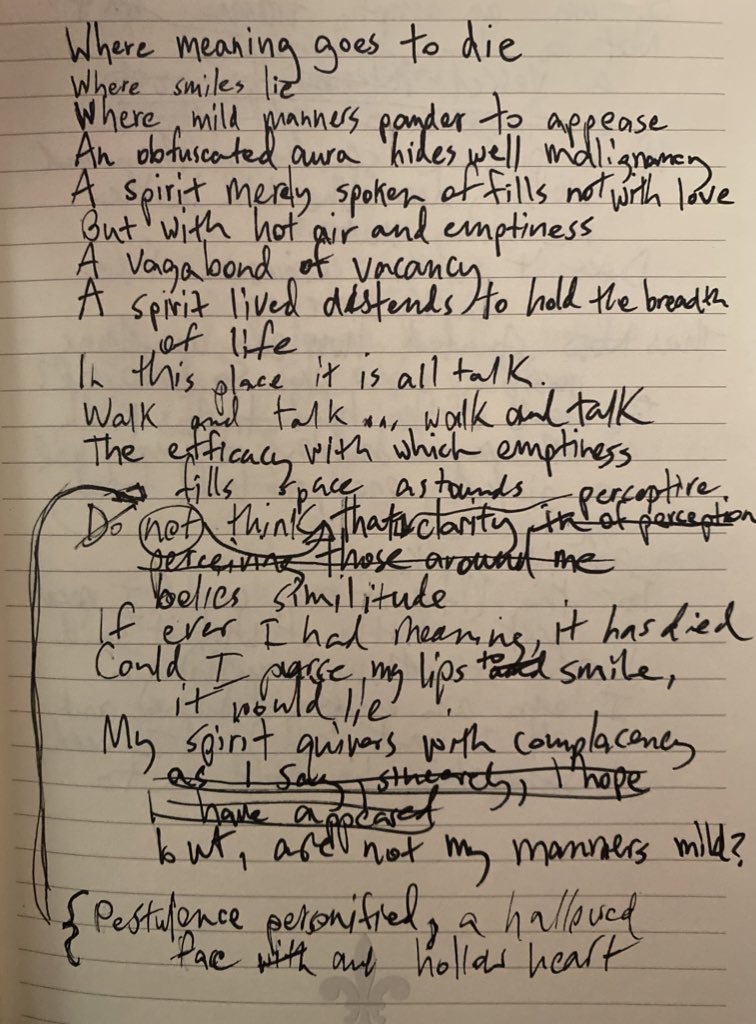 Where meaning goes to die
Where smiles lie
Where mild manners pander to appease
An obfuscated aura hides well malignancy
A spirit merely spoken of fills not with love
But with hot air and emptiness
A vagabond of vacancy
A spirit lived distends to hold the breadth
of life
In this place it is all talk.
Walk and talk .... walk and talk
The efficacy with which emptiness
fills space astounds perceptive
Do not think that clarity in of perception
perceiving those around me
belies similitude
If ever I had meaning, it has died
Could I parse my lips to and smile,
it would lie
My spirit quivers with complacency
as I say, sincerely, I hope
I have appeared
but, are not my manners mild?
{ Pestulence personified, a hallowed
face with and hollow heart